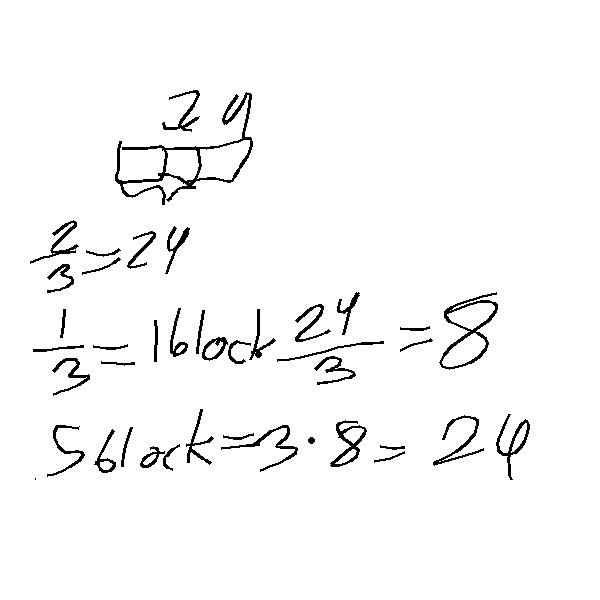 24
2/3=24
1/3=1block 24/3=8
5block=3·8=24